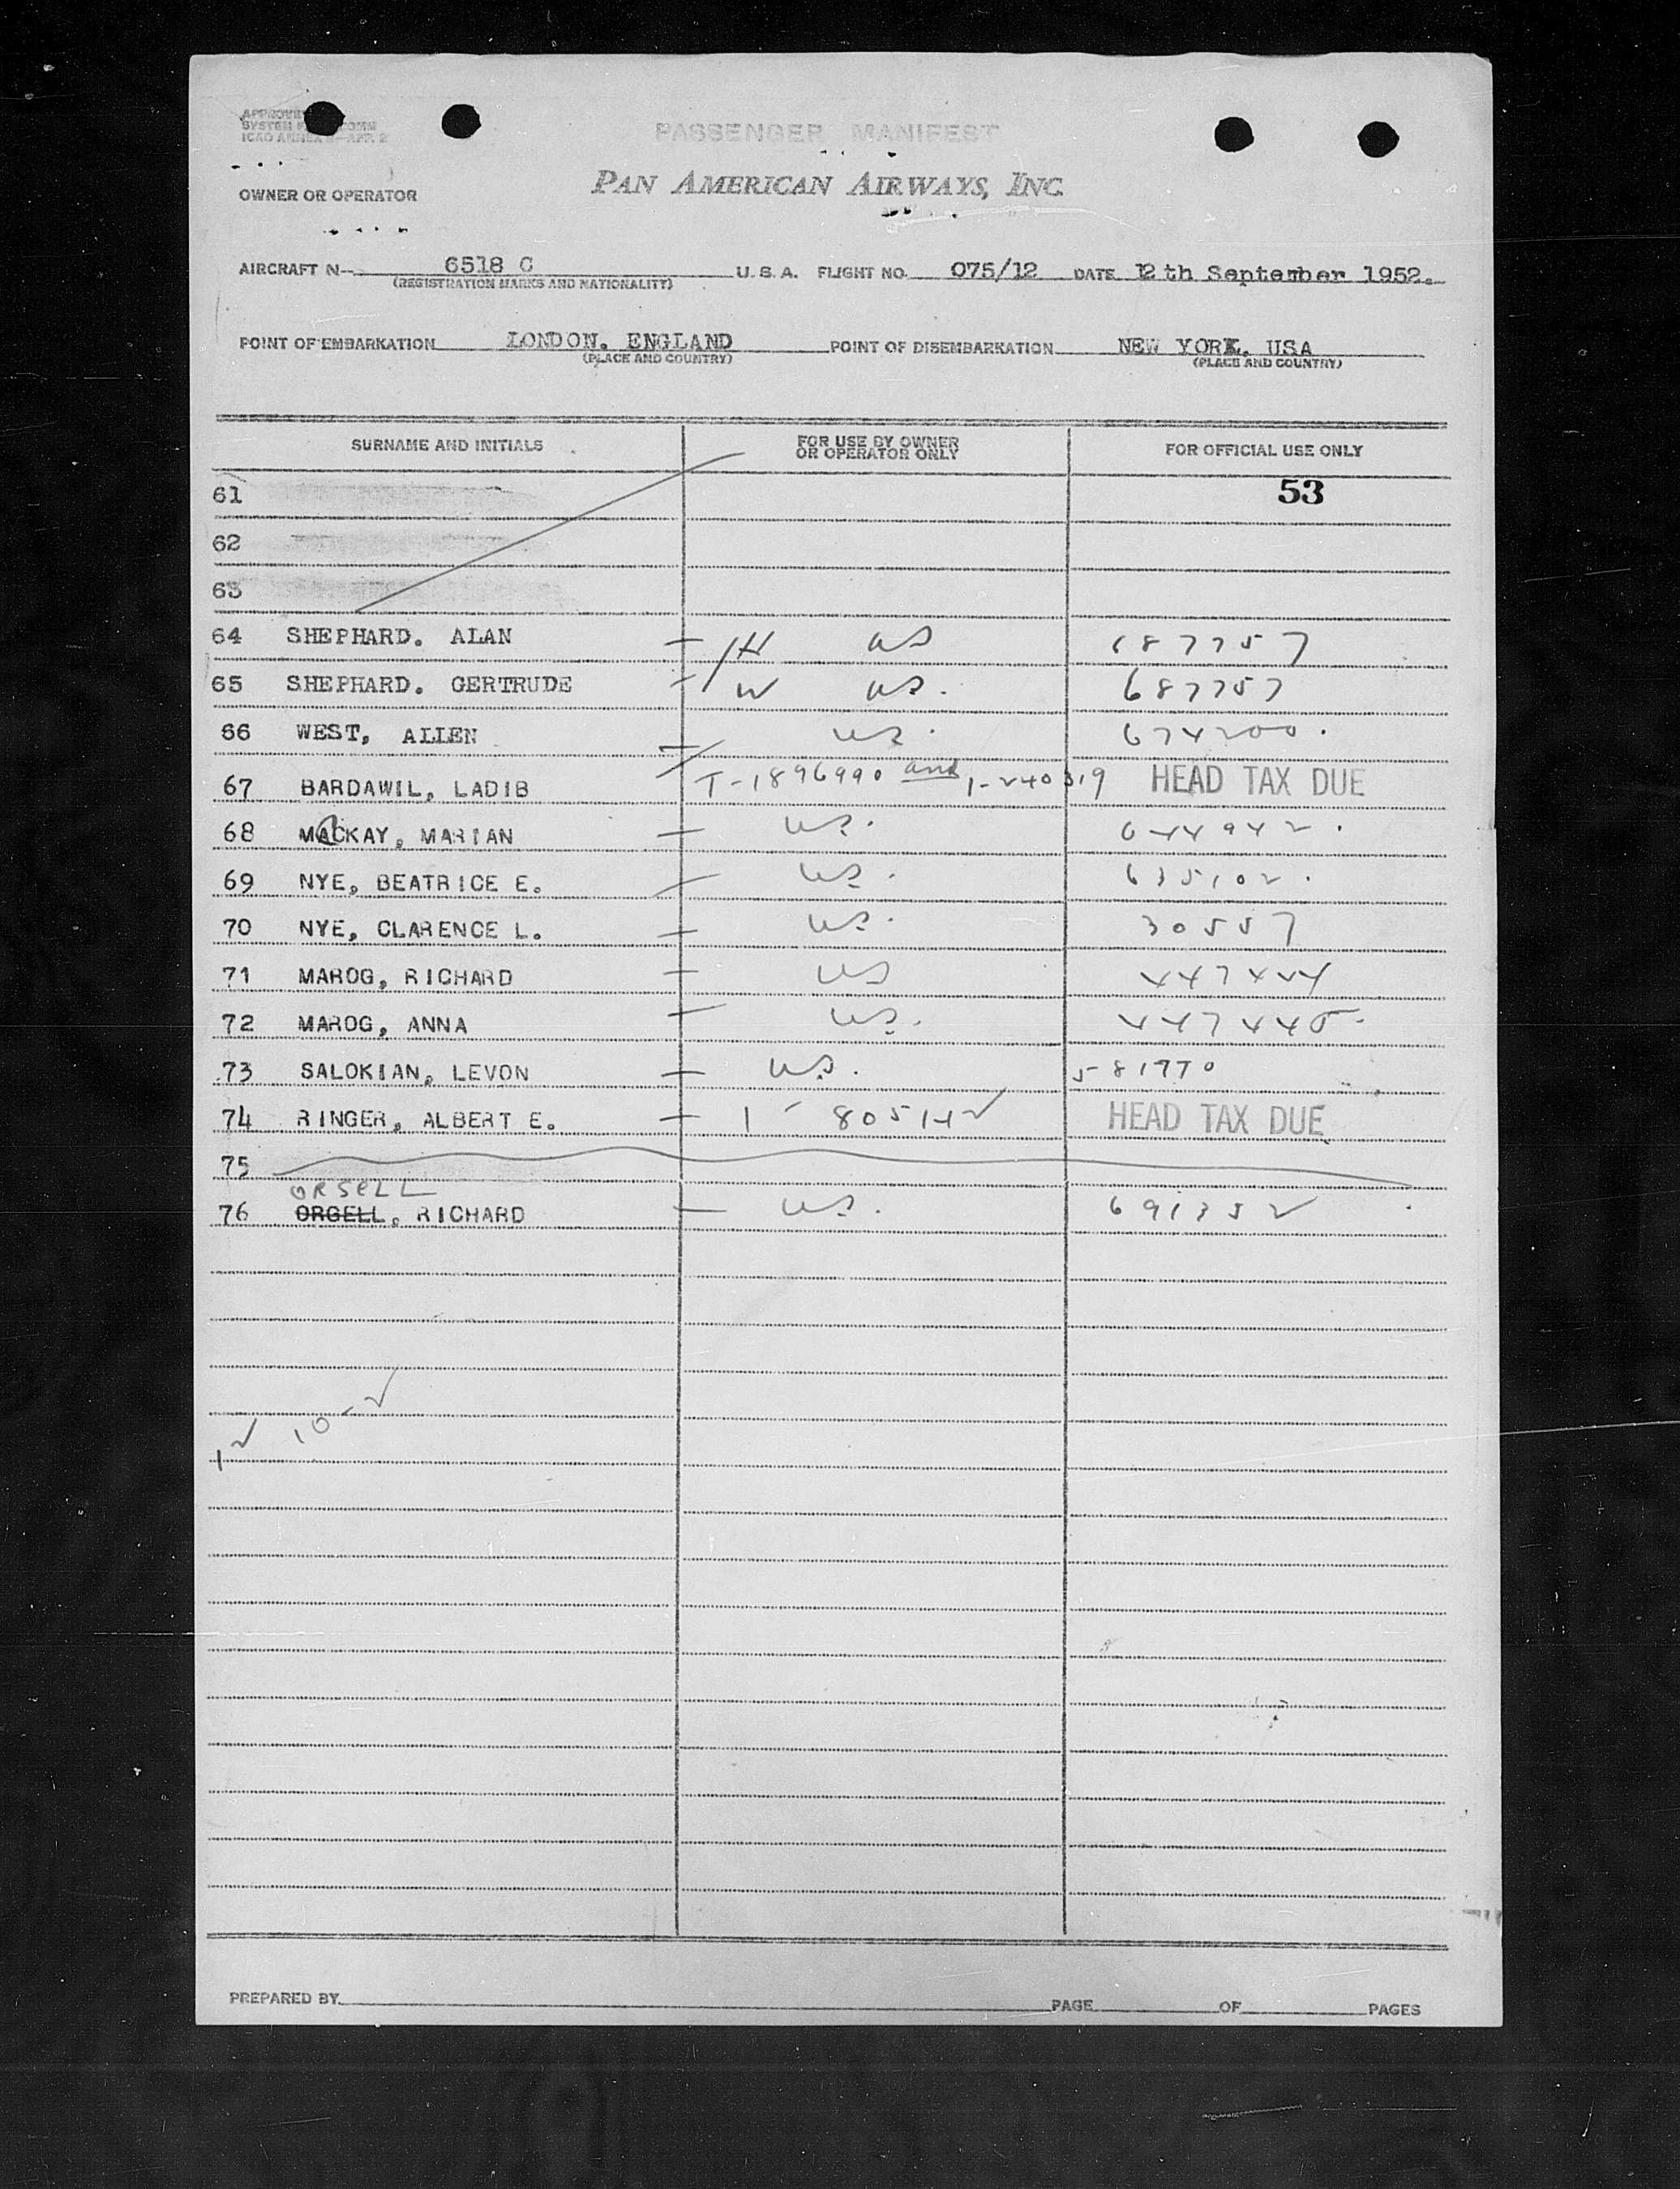 PASSENGER MANIFEST
PAN AMERICAN AIRWAYS, INC.
OWNER OR OPERATOR
AIRCRAFT N- 6518 C U. S. A. FLIGHT NO. 075/12 DATE 12th September 1952.
(REGISTRATION MARKS AND NATIONALITY)
POINT OF EMBARKATION LONDON. ENGLAND POINT OF DISEMBARKATION NEW YORK. USA
(PLACE AND COUNTRY) (PLACE AND COUNTRY)
SURNAME AND INITIALS FOR USE BY OWNER OR OPERATOR ONLY FOR OFFICIAL USE ONLY
61 53
62
63
64 SHEPHARD. ALAN H US 687757
65 SHEPHARD. GERTRUDE W US. 687757
66 WEST, ALLEN US. 674200.
67 BARDAWIL, LADIB T-1896990 and 1-240319 HEAD TAX DUE
68 MACKAY, MARIAN US.
69 NYE, BEATRICE E. US. 635102.
70 NYE, CLARENCE L. US. 30557
71 MAROG, RICHARD US 447444
72 MAROG, ANNA US. 447445.
73 SALOKIAN, LEVON US. 581770
74 RINGER, ALBERT E. 1-80514 HEAD TAX DUE
75
ORSELL
76 ORGELL, RICHARD US. 691352
10
1
PREPARED BY PAGE OF PAGES